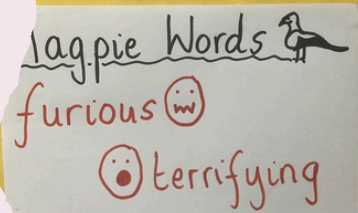 Magpie Words
furious
terrifying